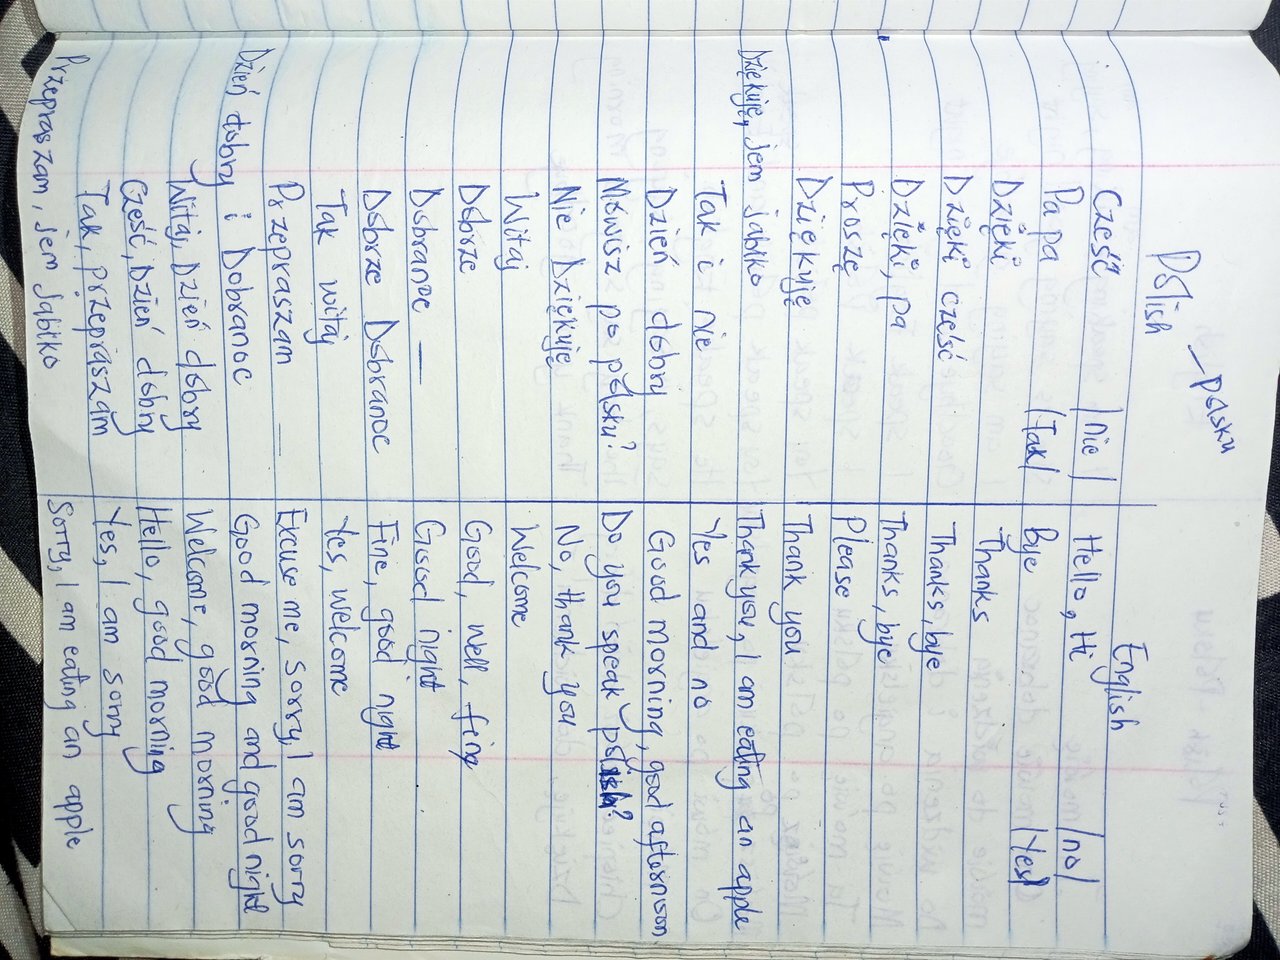 Polish – Polsku English
Cześć /nie/ Hello, Hi /no/
Pa pa /Tak/ Bye /Yes/
Dzięki Thanks
Dzięki cześć Thanks, bye
Dzięki, pa Thanks, bye
Proszę Please
Dziękuję Thank you
Dziękuję, jem jabłko Thank you, I am eating an apple
Tak i nie Yes and no
Dzień dobry Good morning, good afternoon
Mówisz po polsku? Do you speak polish?
Nie Dziękuję No, thank you
Witaj Welcome
Dobrze Good, well, fine
Dobranoc — Good night
Dobrze Dobranoc Fine, good night
Tak witaj Yes, welcome
Przepraszam — Excuse me, sorry, I am sorry
Dzień dobry i Dobranoc Good morning and good night
Witaj, Dzień dobry Welcome, good morning
Cześć, Dzień dobry Hello, good morning
Tak, przepraszam Yes, I am sorry
Przepraszam, jem jabłko Sorry, I am eating an apple